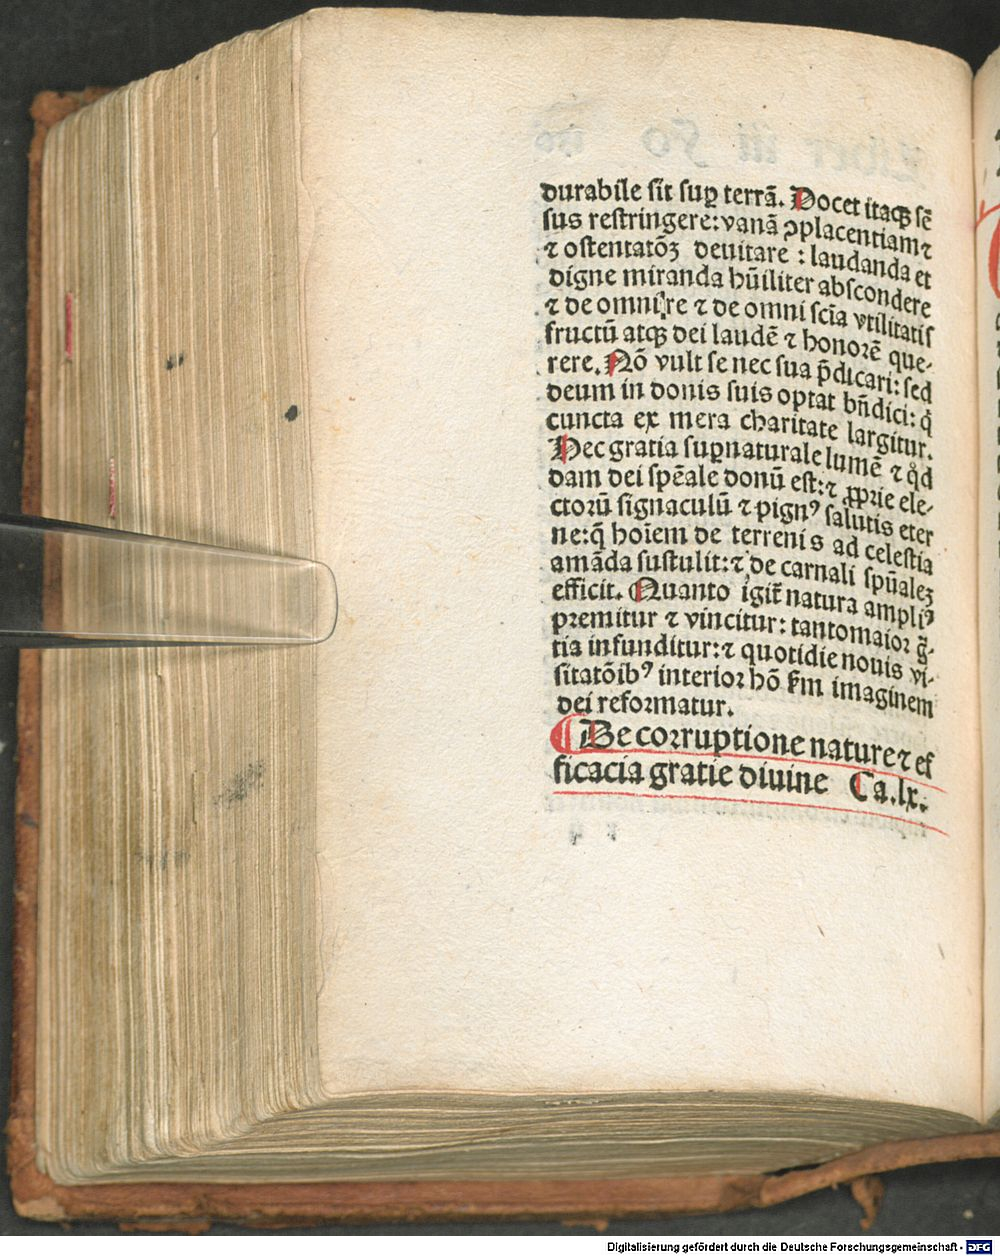 durabile sit suꝑ terrã. Docet itaqꝫ sẽ
sus restringere: vanã ꝯplacentiam ⁊
⁊ ostentatõꝫ deuitare : laudanda et
digne miranda hũiliter abscondere
⁊ de omni re ⁊ de omni scĩa vtilitatis
fructũ atqꝫ dei laudẽ ⁊ honorẽ que-
rere. Nõ vult se nec sua p̃dicari: sed
deum in donis suis optat bñdici: q̃
cuncta ex mera charitate largitur.
Hec gratia suꝑnaturale lumẽ ⁊ qd̾
dam dei spẽale donũ est: ⁊ ꝓprie ele-
ctorũ signaculũ ⁊ pignꝰ salutis eter
ne: q̃ hoĩem de terrenis ad celestia
amãda sustulit: ⁊ de carnali spũaleꝫ
efficit. Quanto igit̃ natura ampliꝰ
premitur ⁊ vincitur: tantomaior g̃-
tia infunditur: ⁊ quotidie nouis vi-
sitatõibꝰ interior hõ s̃m imaginem
dei reformatur.
¶ De corruptione nature ⁊ ef
ficacia gratie diuine Ca.lx.
Digitalisierung gefördert durch die Deutsche Forschungsgemeinschaft - DFG